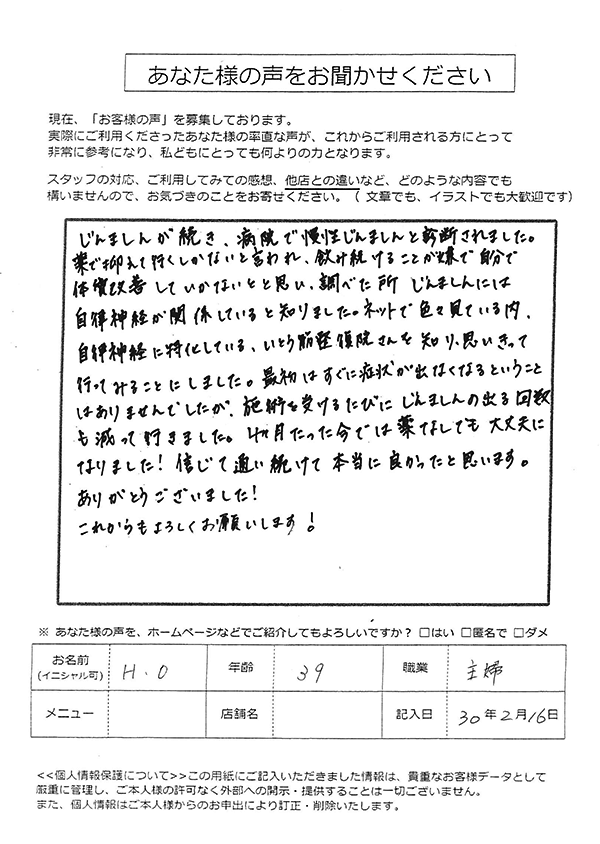 あなた様の声をお聞かせください
現在、「お客様の声」を募集しております。
実際にご利用くださったあなた様の率直な声が、これからご利用される方にとって
非常に参考になり、私どもにとっても何よりの力となります。
スタッフの対応、ご利用してみての感想、他店との違いなど、どのような内容でも
構いませんので、お気づきのことをお寄せください。（ 文章でも、イラストでも大歓迎です）
じんましんが続き、病院で慢性じんましんと診断されました。
薬で抑えて行くしかないと言われ、飲み続けることが嫌で自分で
体質改善していかないとと思い、調べた所 じんましんには
自律神経が関係していると知りました。ネットで色々見ている内、
自律神経に特化している、いとう筋整復院さんを知り、思いきって
行ってみることにしました。最初はすぐに症状が出なくなるということ
はありませんでしたが、施術を受けるたびにじんましんの出る回数
も減って行きました。4ヶ月たった今では薬なしでも大丈夫に
なりました！信じて通い続けて本当に良かったと思います。
ありがとうございました！
これからもよろしくお願いします！
※ あなた様の声を、ホームページなどでご紹介してもよろしいですか？ □はい □匿名で □ダメ
お名前（イニシャル可） H.O 年齢 39 職業 主婦
メニュー 店舗名 記入日 30年2月16日
<<個人情報保護について>>この用紙にご記入いただきました情報は、貴重なお客様データとして
厳重に管理し、ご本人様の許可なく外部への開示・提供することは一切ございません。
また、個人情報はご本人様からのお申出により訂正・削除いたします。